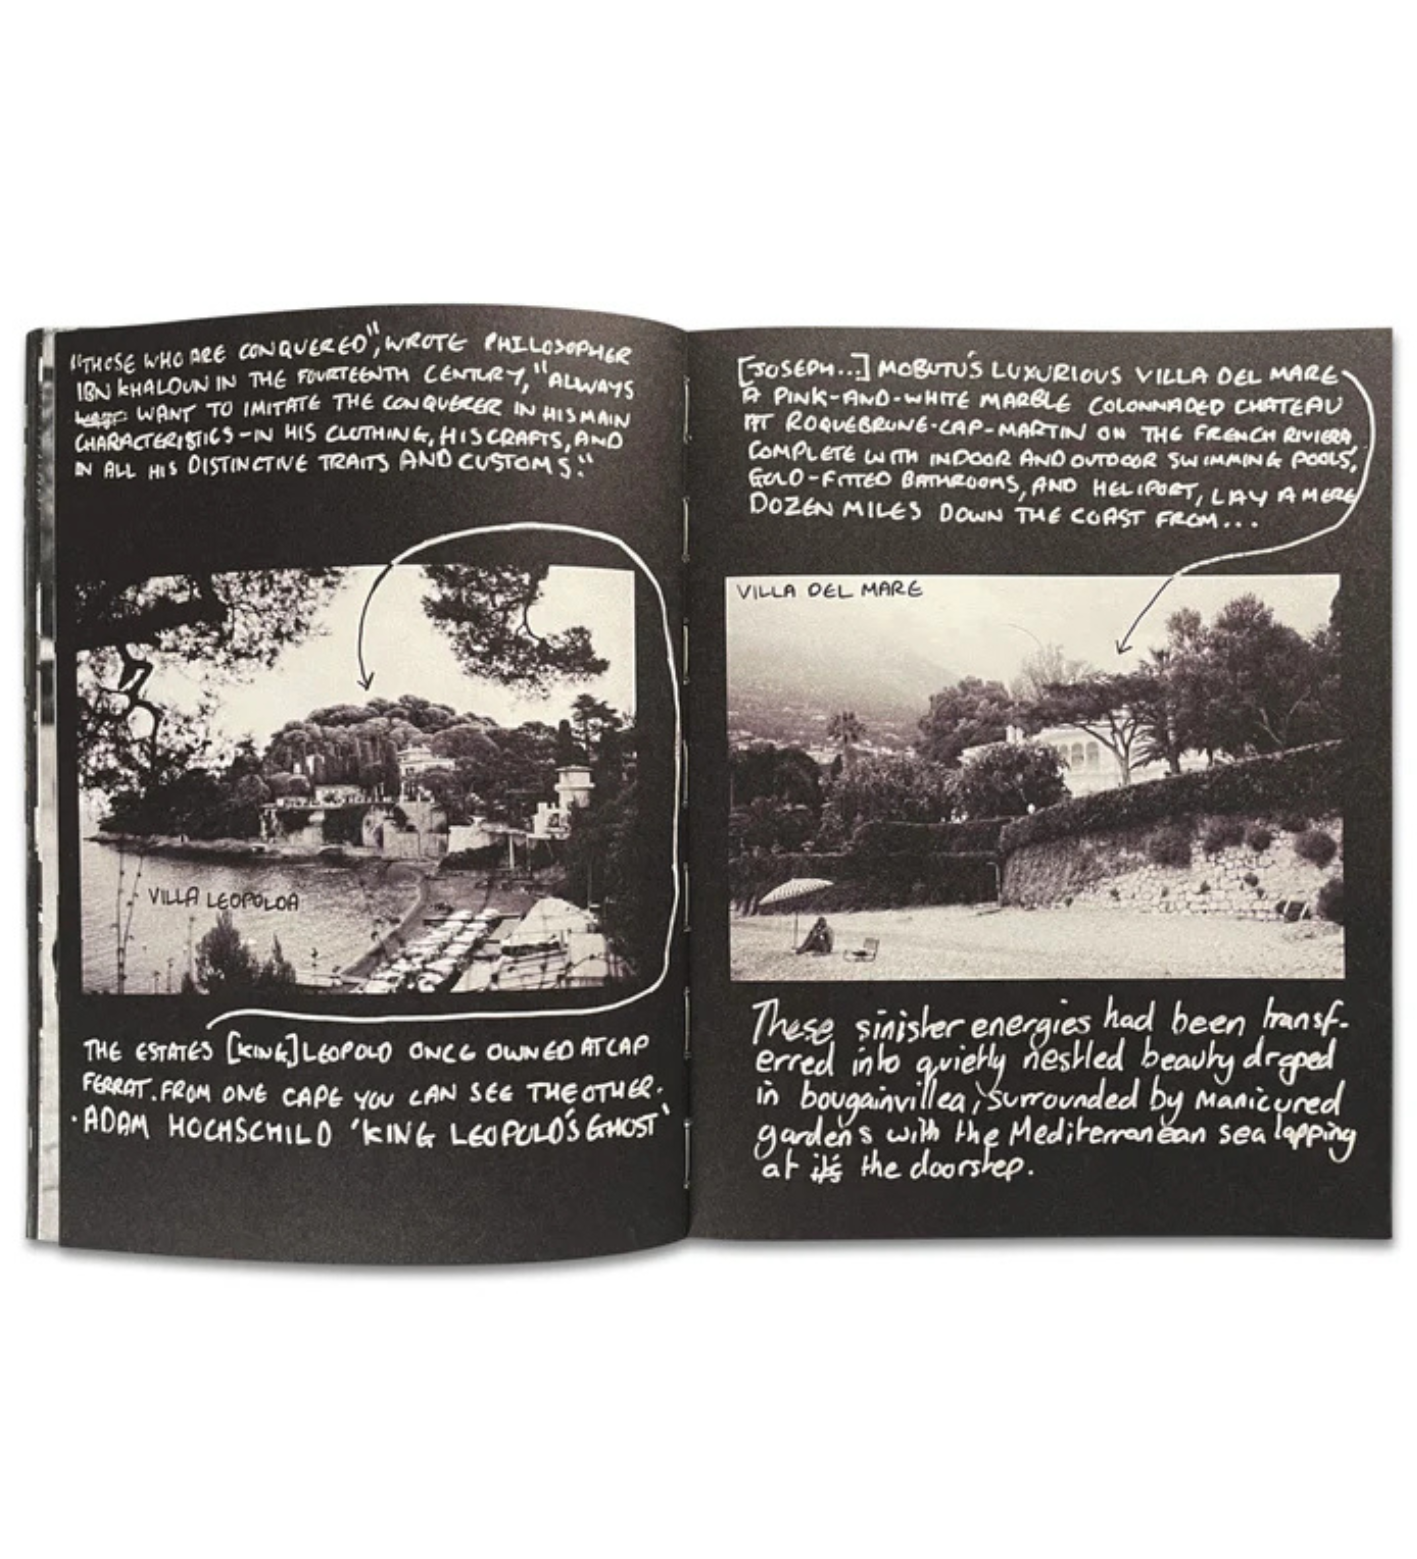 "THOSE WHO ARE CONQUERED", WROTE PHILOSOPHER
IBN KHALDUN IN THE FOURTEENTH CENTURY, "ALWAYS
WANT TO IMITATE THE CONQUERER IN HIS MAIN
CHARACTERISTICS-IN HIS CLOTHING, HIS CRAFTS, AND
IN ALL HIS DISTINCTIVE TRAITS AND CUSTOMS."
VILLA LEOPOLDA
THE ESTATES [KING] LEOPOLD ONCE OWNED AT CAP
FERRAT. FROM ONE CAPE YOU CAN SEE THE OTHER.
-ADAM HOCHSCHILD 'KING LEOPOLD'S GHOST'
[JOSEPH...] MOBUTU'S LUXURIOUS VILLA DEL MARE
A PINK-AND-WHITE MARBLE COLONNADED CHATEAU
AT ROQUEBRUNE-CAP-MARTIN ON THE FRENCH RIVIERA,
COMPLETE WITH INDOOR AND OUTDOOR SWIMMING POOLS,
GOLD-FITTED BATHROOMS, AND HELIPORT, LAY A MERE
DOZEN MILES DOWN THE COAST FROM...
VILLA DEL MARE
These sinister energies had been transf-
erred into quietly nestled beauty draped
in bougainvillea, surrounded by manicured
gardens with the Mediterranean sea lapping
at its the doorstep.